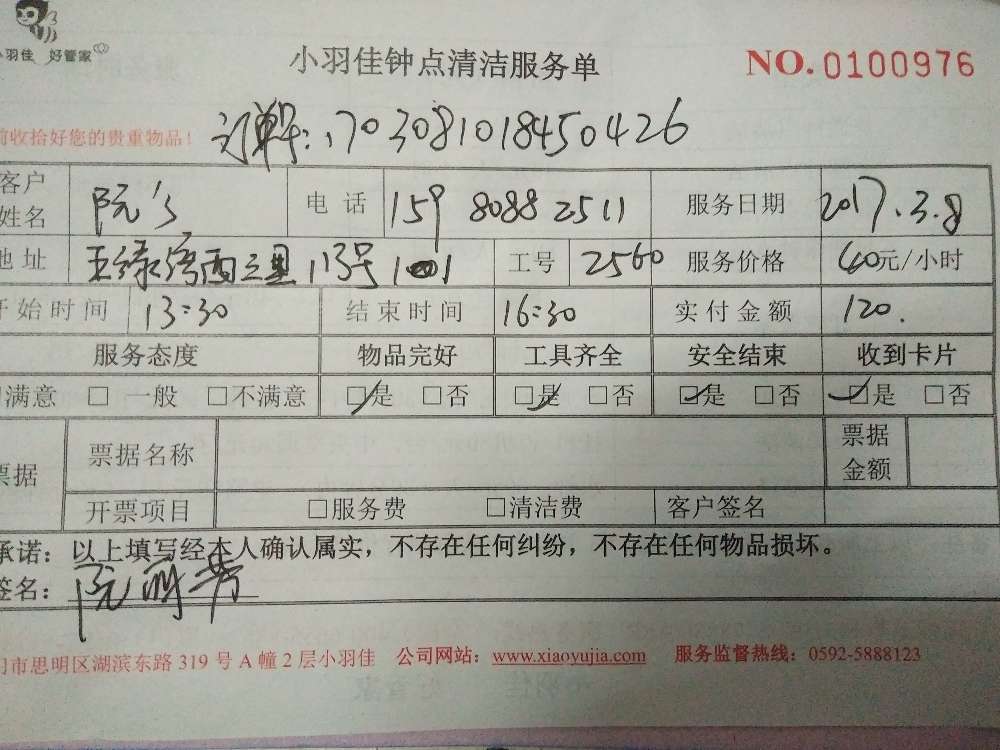 小羽佳 好管家
小羽佳钟点清洁服务单 NO.0100976
前收拾好您的贵重物品! 订单号:1703081018450426
客户姓名 阮's 电话 159 8088 2511 服务日期 2017.3.8
地址 西之里113号1001 工号 2560 服务价格 40元/小时
开始时间 13:30 结束时间 16:30 实付金额 120.
服务态度 物品完好 工具齐全 安全结束 收到卡片
满意 □ 一般 □不满意 □是 □否 □是 □否 □是 □否 □是 □否
票据 票据名称 票据金额
开票项目 □服务费 □清洁费 客户签名
承诺：以上填写经本人确认属实，不存在任何纠纷，不存在任何物品损坏。
签名：阮丽芳
门市思明区湖滨东路 319 号 A 幢 2 层小羽佳 公司网站：www.xiaoyujia.com 服务监督热线：0592-5888123